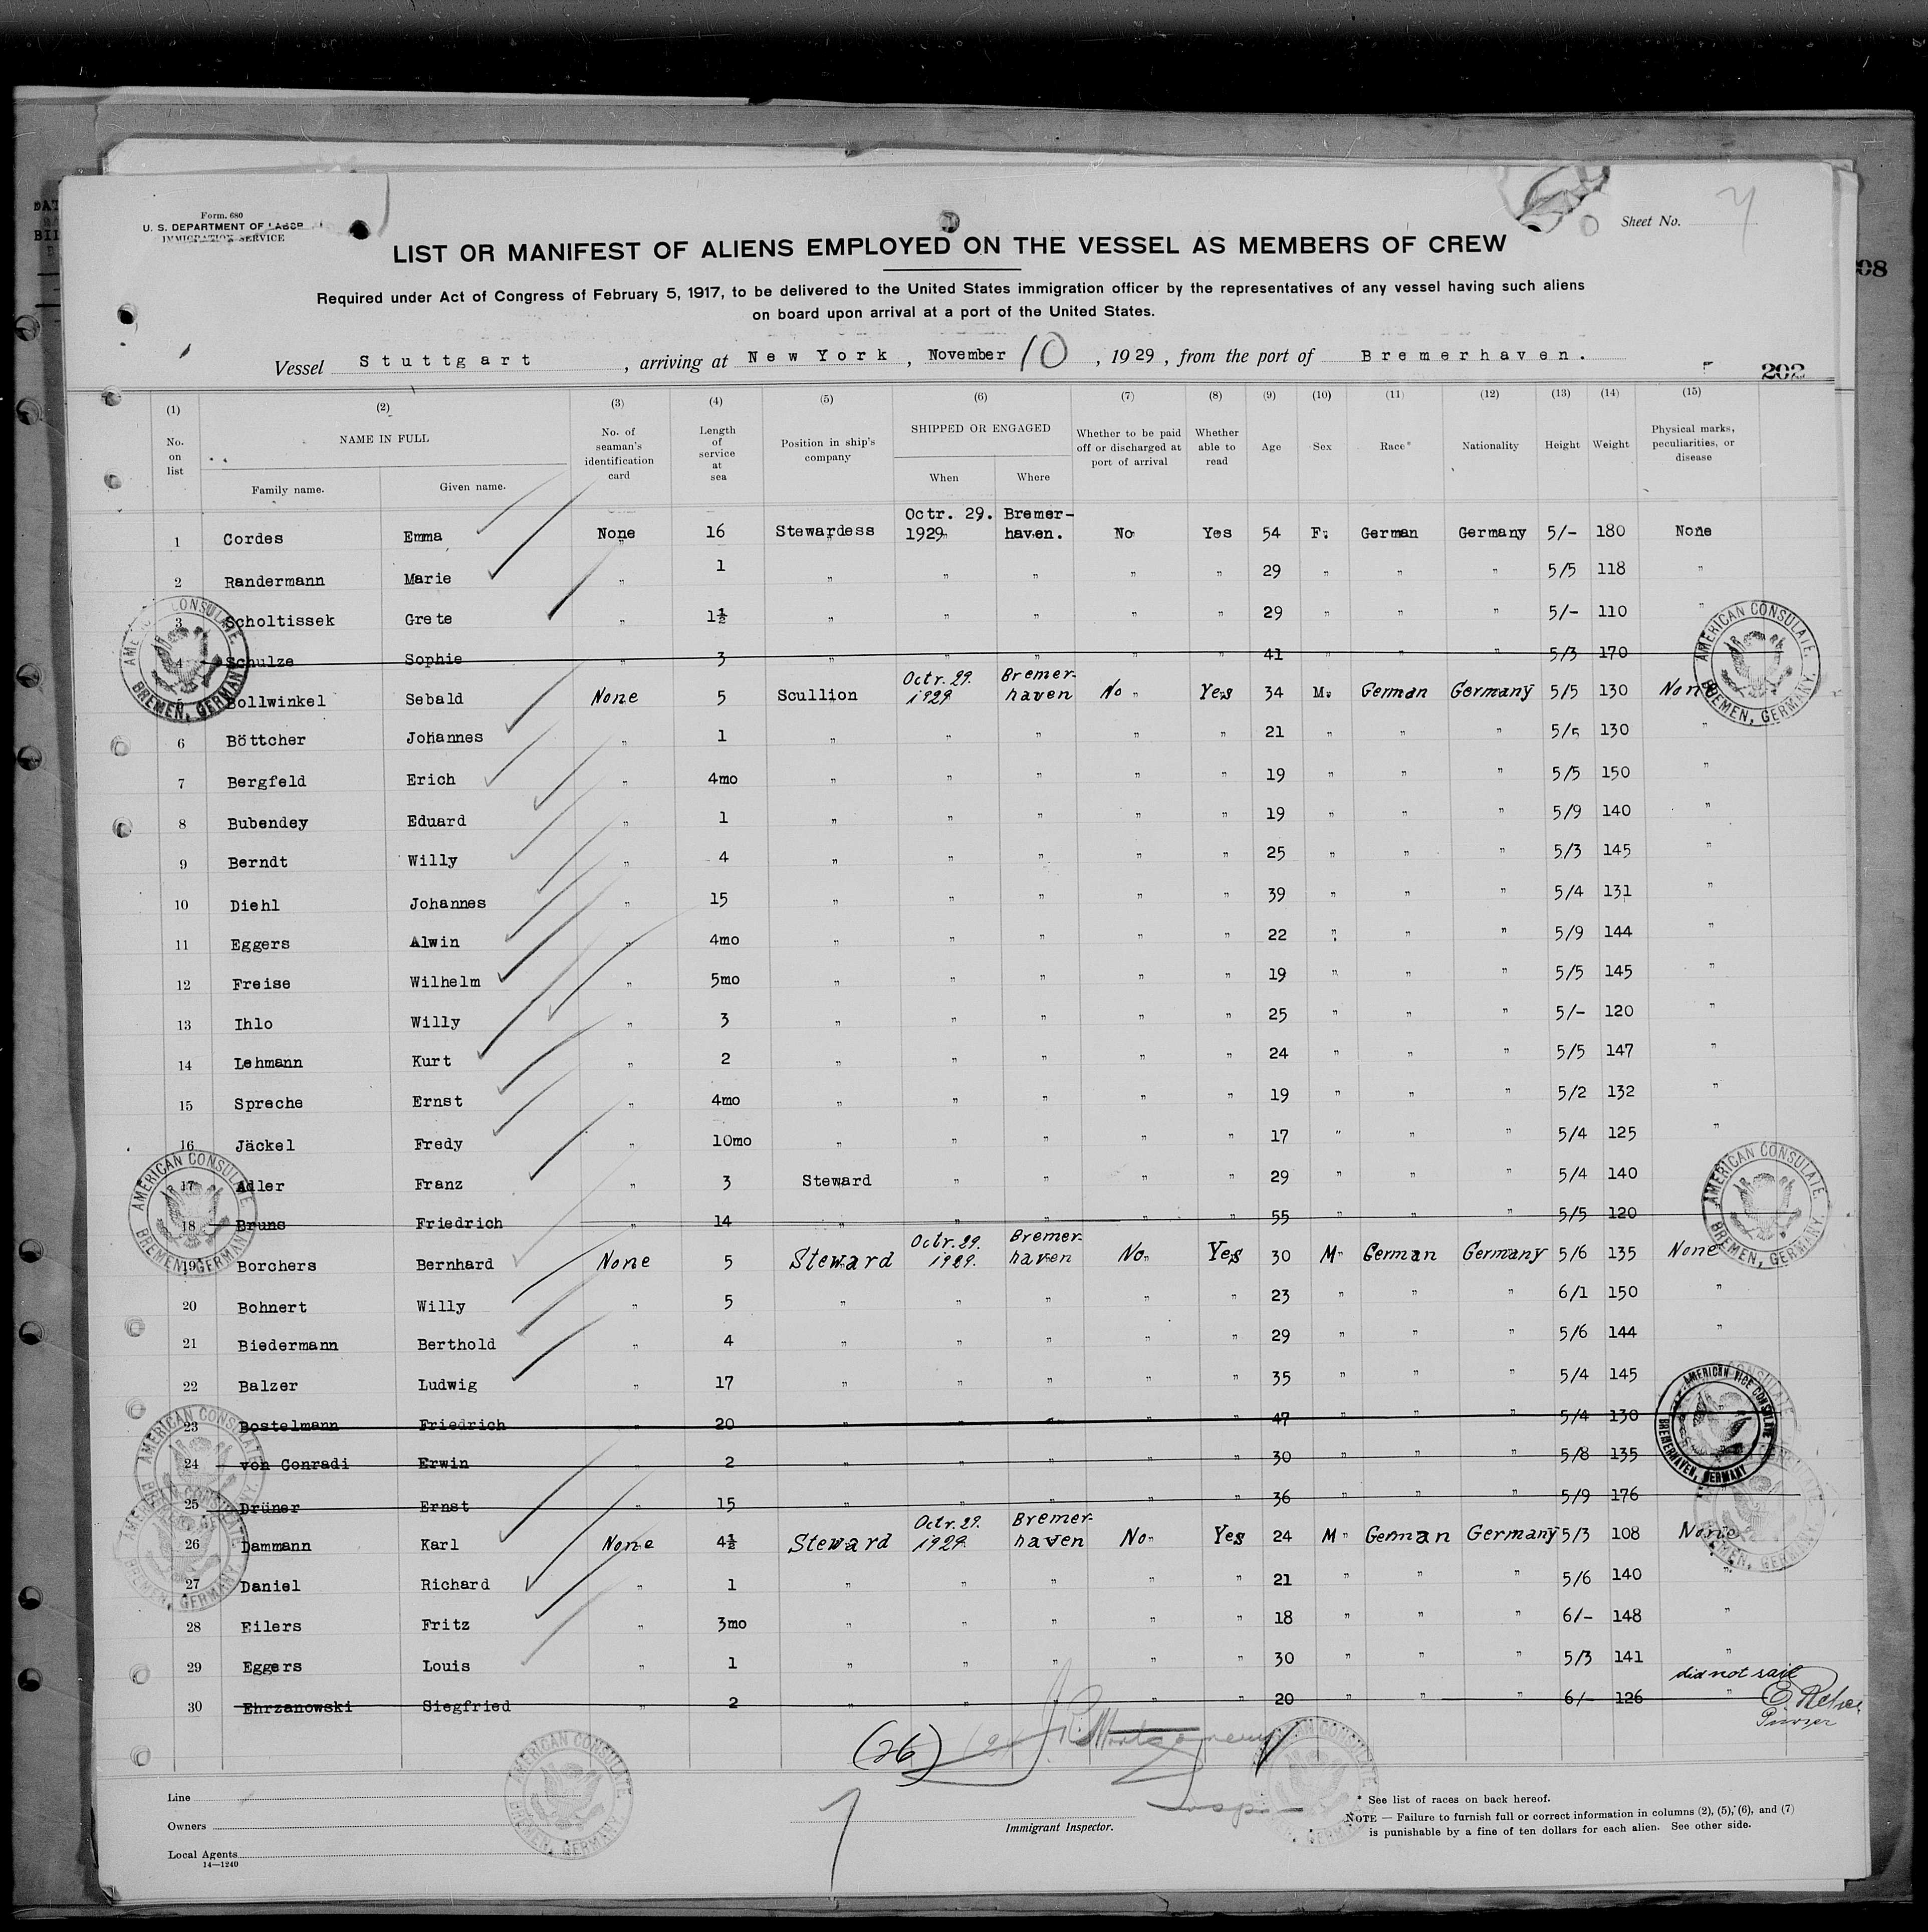 Form. 680
U. S. DEPARTMENT OF LABOR
IMMIGRATION SERVICE
Sheet No. 7
LIST OR MANIFEST OF ALIENS EMPLOYED ON THE VESSEL AS MEMBERS OF CREW
Required under Act of Congress of February 5, 1917, to be delivered to the United States immigration officer by the representatives of any vessel having such aliens
on board upon arrival at a port of the United States.
Vessel Stuttgart , arriving at New York , November 10 , 1929 , from the port of Bremerhaven.
202
(1) (2) (3) (4) (5) (6) (7) (8) (9) (10) (11) (12) (13) (14) (15)
No. on list NAME IN FULL Family name. Given name. No. of seaman's identification card Length of service at sea Position in ship's company SHIPPED OR ENGAGED When Where Whether to be paid off or discharged at port of arrival Whether able to read Age Sex Race* Nationality Height Weight Physical marks, peculiarities, or disease
1 Cordes Emma None 16 Stewardess Octr. 29. 1929 Bremer-haven. No Yes 54 F. German Germany 5/- 180 None
2 Randermann Marie " 1 " " " " " 29 " " " 5/5 118 "
3 Scholtissek Grete " 1½ " " " " " 29 " " " 5/- 110 "
4 Schulze Sophie " 3 " " " " " 41 " " " 5/3 170
5 Bollwinkel Sebald None 5 Scullion Octr. 29. 1929 Bremer-haven No Yes 34 M. German Germany 5/5 130 None
6 Böttcher Johannes " 1 " " " " " 21 " " " 5/5 130 "
7 Bergfeld Erich " 4mo " " " " " 19 " " " 5/5 150 "
8 Bubendey Eduard " 1 " " " " " 19 " " " 5/9 140 "
9 Berndt Willy " 4 " " " " " 25 " " " 5/3 145 "
10 Diehl Johannes " 15 " " " " " 39 " " " 5/4 131 "
11 Eggers Alwin " 4mo " " " " " 22 " " " 5/9 144 "
12 Freise Wilhelm " 5mo " " " " " 19 " " " 5/5 145 "
13 Ihlo Willy " 3 " " " " " 25 " " " 5/- 120 "
14 Lehmann Kurt " 2 " " " " " 24 " " " 5/5 147 "
15 Spreche Ernst " 4mo " " " " " 19 " " " 5/2 132 "
16 Jäckel Fredy " 10mo " " " " " 17 " " " 5/4 125 "
17 Adler Franz " 3 Steward " " " " 29 " " " 5/4 140
18 Bruns Friedrich " 14 " " " " " 55 " " " 5/5 120
19 Borchers Bernhard None 5 Steward Octr. 29. 1929. Bremer-haven No Yes 30 M German Germany 5/6 135 None
20 Bohnert Willy " 5 " " " " " 23 " " " 6/1 150 "
21 Biedermann Berthold " 4 " " " " " 29 " " " 5/6 144 "
22 Balzer Ludwig " 17 " " " " " 35 " " " 5/4 145
23 Bostelmann Friedrich " 20 " " " " " 47 " " " 5/4 130
24 von Conradi Erwin " 2 " " " " " 30 " " " 5/8 135
25 Drüner Ernst " 15 " " " " " 36 " " " 5/9 176
26 Dammann Karl None 4½ Steward Octr. 29. 1929. Bremer-haven No Yes 24 M German Germany 5/3 108 None
27 Daniel Richard " 1 " " " " " 21 " " " 5/6 140 "
28 Eilers Fritz " 3mo " " " " " 18 " " " 6/- 148 "
29 Eggers Louis " 1 " " " " " 30 " " " 5/3 141 "
did not sail
30 Ehrzanowski Siegfried " 2 " " " " " 20 " " " 6/- 126 "
Purser
(26) J. R. Montgomery
Insp
Line
Owners
Local Agents
14—1240
Immigrant Inspector.
* See list of races on back hereof.
NOTE — Failure to furnish full or correct information in columns (2), (5), (6), and (7)
is punishable by a fine of ten dollars for each alien. See other side.
AMERICAN CONSULATE. BREMEN, GERMANY.
AMERICAN CONSULATE. BREMEN, GERMANY.
AMERICAN CONSULATE. BREMEN, GERMANY.
AMERICAN CONSULATE. BREMEN, GERMANY.
AMERICAN VICE CONSULATE BREMERHAVEN, GERMANY
AMERICAN CONSULATE. BREMEN, GERMANY.
AMERICAN CONSULATE. BREMEN, GERMANY.
AMERICAN CONSULATE. BREMEN, GERMANY.
AMERICAN CONSULATE. BREMEN, GERMANY.